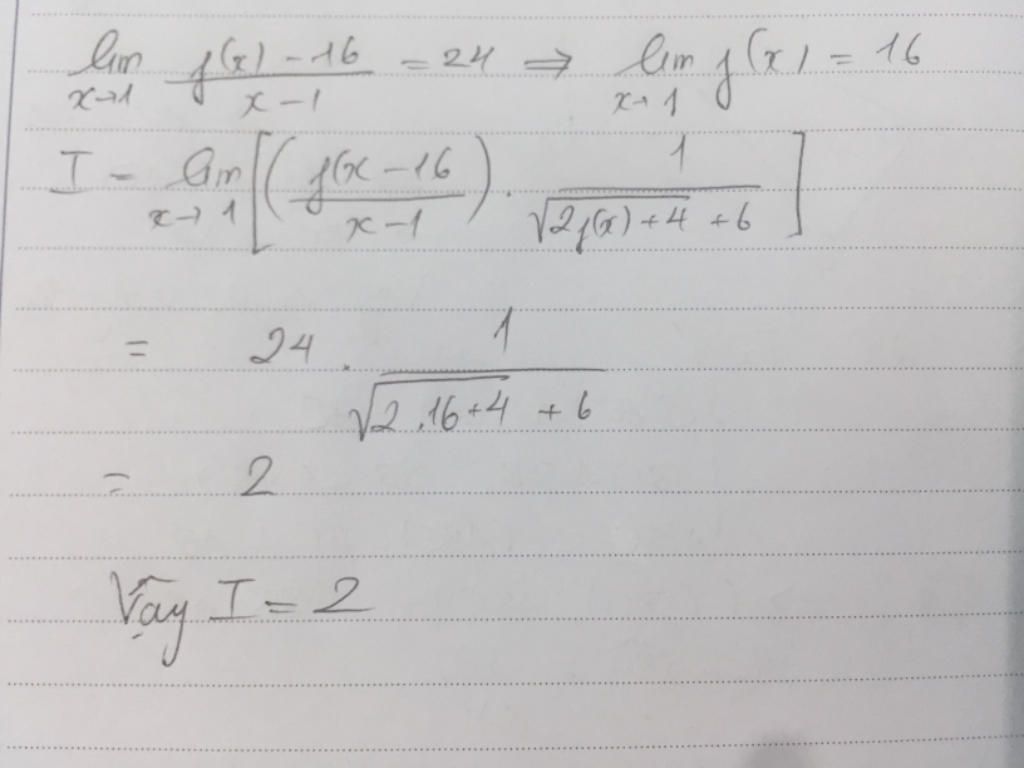 lim x→1 (f(x) − 16)/(x − 1) = 24 ⇒ lim x→1 f(x) = 16
I = lim x→1 [((f(x − 16)/(x − 1)) . 1/(√(2f(x)+4) + 6)]
= 24 . 1/(√(2.16+4) + 6)
= 2
Vậy I = 2